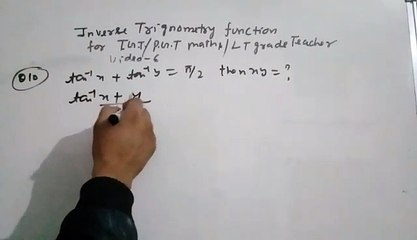 Inverse Trignometry function
for TGT/PGT maths/LT grade Teacher
Video-6
Q10 tan⁻¹x + tan⁻¹y = π/2 then xy = ?
tan⁻¹ x + y